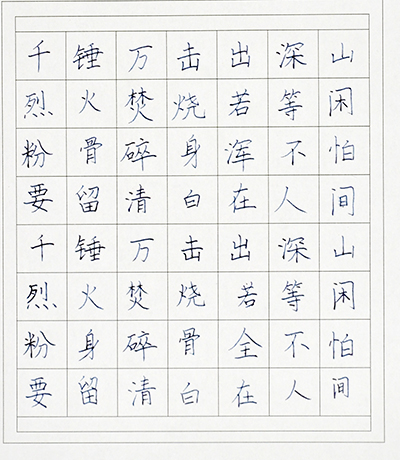 千锤万击出深山
烈火焚烧若等闲
粉骨碎身浑不怕
要留清白在人间
千锤万击出深山
烈火焚烧若等闲
粉身碎骨全不怕
要留清白在人间